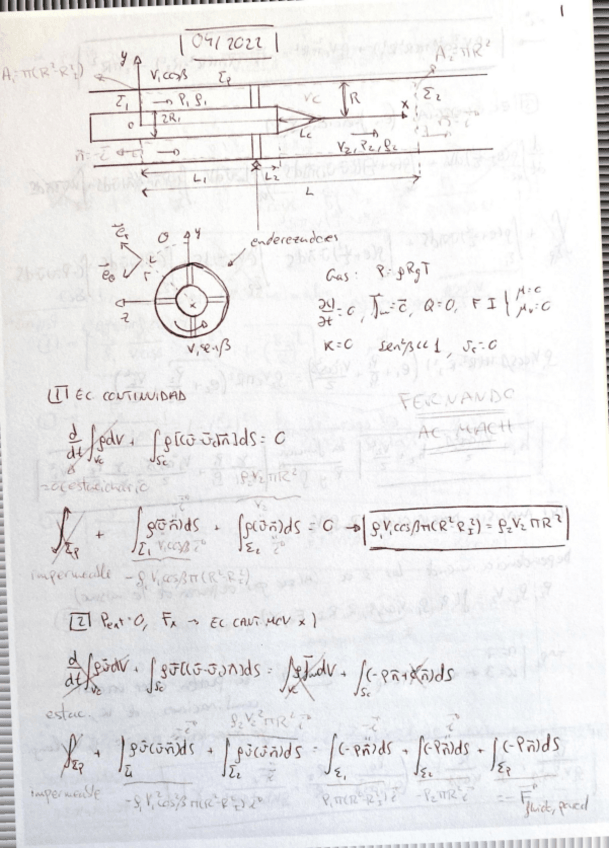 1
04/2022
A₁=π(R²-R₁²)
y
V₁cosβ
Σp
A₂=πR²
Σ₁
→ P₁ ρ₁
Vc
R
x
Σ₂
0
2R₁
Lc
V₂, P₂, ρ₂
L₁
L₂
L
enderezadores
y
z
x
V₁senβ
Gas: P=ρRgT
K=0 sen²β<<1, vc=0
FERNANDO
AC MACH
[1] EC CONTINUIDAD
d/dt ∫Vc ρdV + ∫Sc ρ[(v̄-v̄c)n̄]dS = 0
ρ₂V₂πR²
∫Σp + ∫Σ₁ ρ(v̄n̄)dS + ∫Σ₂ ρ(v̄n̄)dS = 0 → ρ₁V₁cosβπ(R²-R₁²) = ρ₂V₂πR²
impermeable -ρ₁V₁cosβπ(R²-R₁²)
[2] Pext=0, Fx → EC CANT MOV x)
d/dt ∫Vc ρv̄dV + ∫Sc ρv̄[(v̄-v̄c)n̄]dS = ∫Vc ρf̄mdV + ∫Sc (-Pn̄+τ̄n̄)dS
estac.
ρ₂V₂²πR² ī
∫Σp + ∫Σ₁ ρv̄(v̄n̄)dS + ∫Σ₂ ρv̄(v̄n̄)dS = ∫Σ₁ (-Pn̄)dS + ∫Σ₂ (-Pn̄)dS + ∫Σp (-Pn̄)dS
impermeable -ρ₁V₁²cos²βπ(R²-R₁²) ī P₁π(R²-R₁²) ī -P₂πR² ī = -F̄ fluid, pared